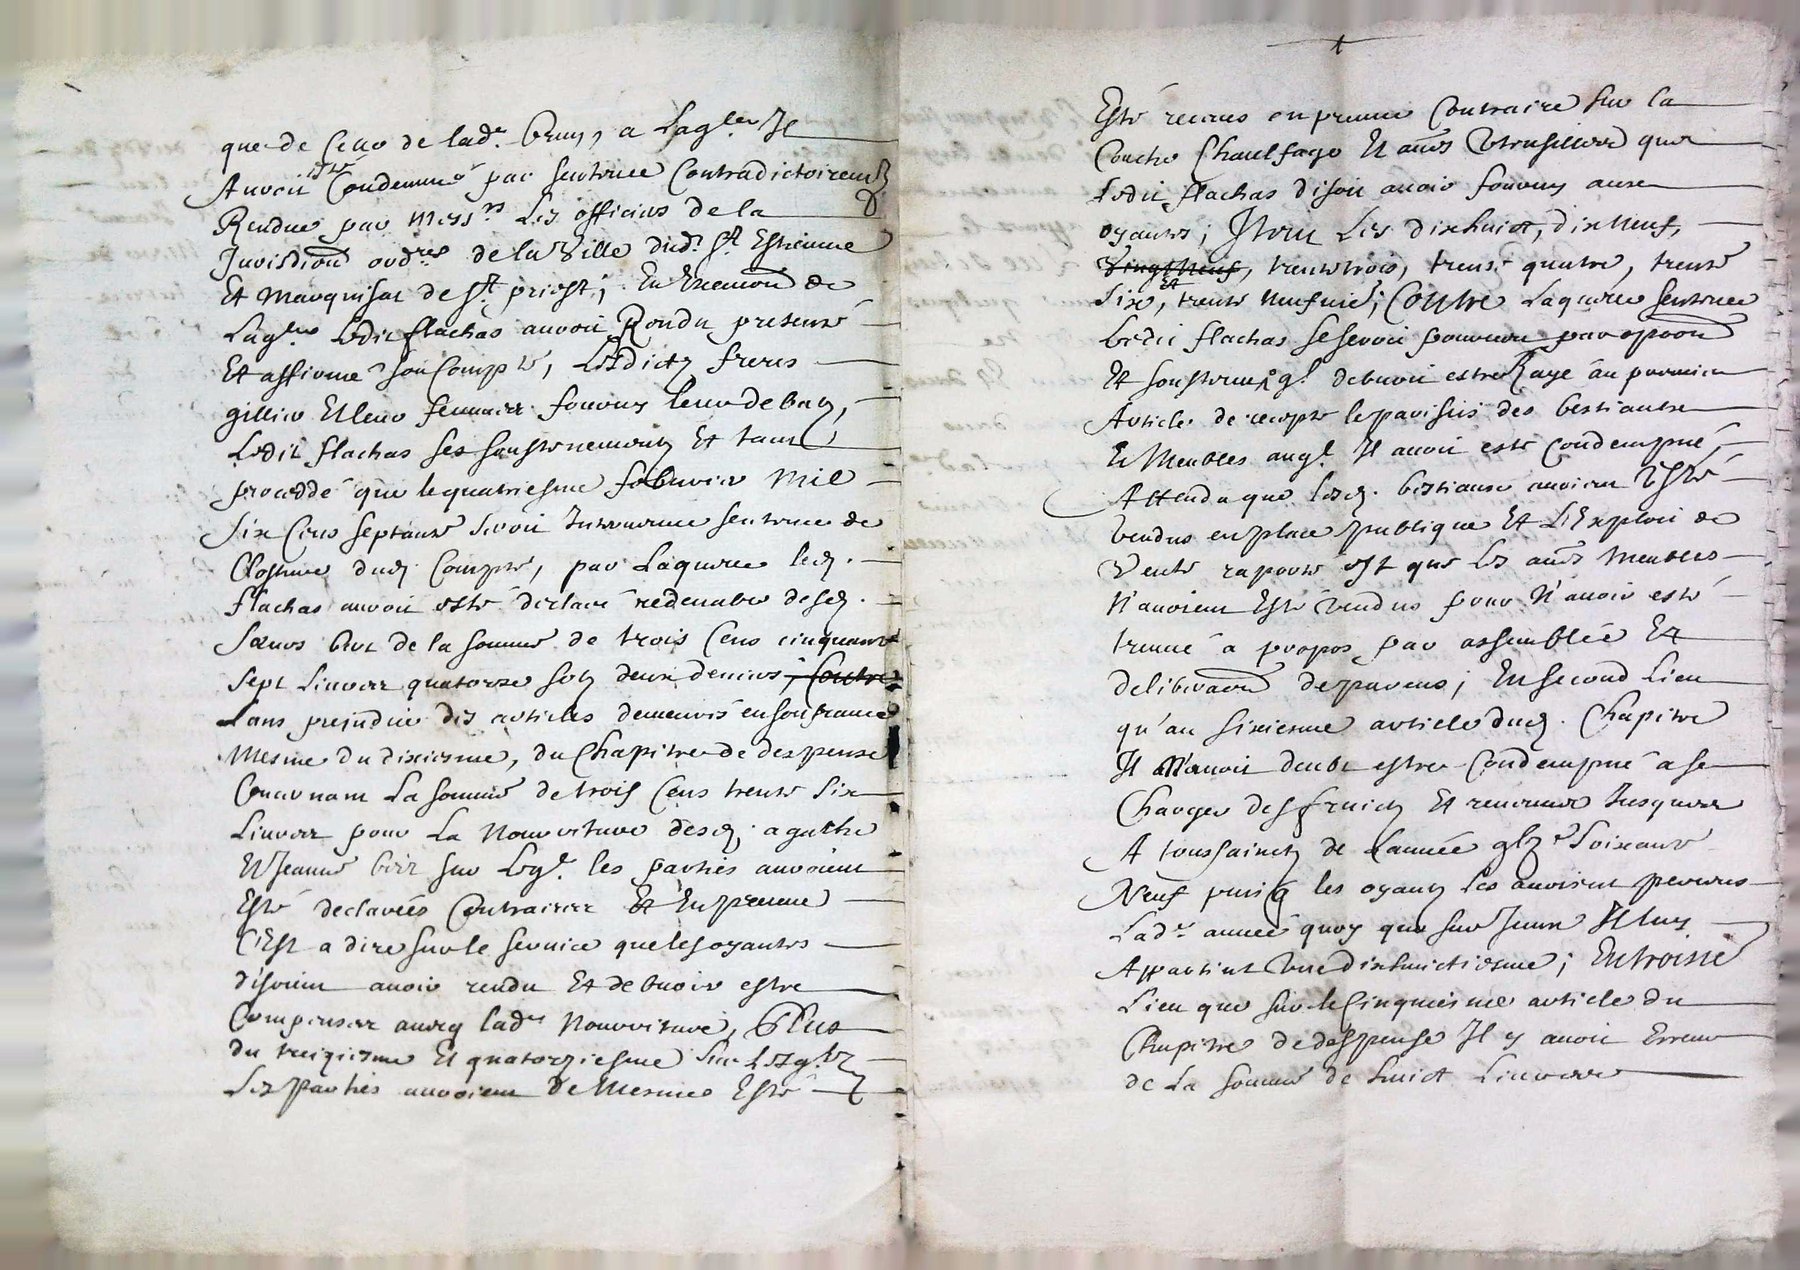 que de celle de lad.e Bruy, a laq.lle Il
Auroit esté Condemné par sentence Contradictoirem.t
Rendue par Mess.rs Les officiers de la
Jurisdi͠on ord.re de la Ville dud. S.t Estienne
Et Marquisat de S.t priest; En Execu͠on de
Laq.lle Ledit flachas auroit Rendu presenté
Et affirmé son Compte, Lesdictz freres
gillier Et leurs femmes fourny leurs debatz,
Ledit flachas ses soustenementz Et tant
proceddé que le quatriesme febvrier Mil
Six Cens septante seroit Intervenue sentence de
Closture dud. Compte, par Laquelle led.
flachas auroit esté declaré redevable desd.
Sœurs de la somme de trois Cens cinquante
Sept Livres quatorze solz deux deniers, Contre
Sans prejudice des articles demeurés en souffrance
Mesme du dixiesme, du Chapitre de despense
Concernant La somme de trois Cens trente Six
Livres pour La Nourriture desd. agathe
Et Jeanne sur Leq.l les parties auroient
Esté declarées Contraires Et En preuve
C'Est a dire sur le service que les oyantes
disoient avoir rendu Et debvoir estre
Compenser avecq lad.e Nourriture, Plus
du treiziesme Et quatorziesme sur Lesq.lz
Les parties auroient de Mesme Esté
Esté receues en preuve Contraire sur la
Couche Chaulfage Et au͠es Utensilles que
Ledit flachas disoit avoir fourny aux
oyantes; Item Les dixhuict, dix Neuf,
Vingt Neuf, trente trois, trente quatre, trente
Six, Et trente Neufvie; Contre Laquelle sentence
Ledit flachas se seroit pourveu par oppo͠on
Et soustenu q.l debvoit estre Rayé au premier
Article de recepte le parisis des bestiaux
Et Meubles auq.l Il auroit esté Condempné,
Attendu que lesd. bestiaux avoient Esté
Vendus en place publique Et L'Exploit de
Vente raporté Est que Les au͠es Meubles
N'avoient Esté Vendus pour N'avoir esté
treuvé a propos par assemblée Et
delibera͠on de parens; En second Lieu
qu'au sixiesme article dud. Chapitre
Il N'auroit deub estre Condempné a se
Charger des fruictz Et revenus Jusques
A toussainctz de L'année Soixante
Neuf puisq les oyantz Les avoient perceus
Lad.e année quoy que sur Iceux Il luy
Appartint Une dixhuictiesme; En troisie
Lieu que sur le Cinquiesme article du
Chapitre de despense Il y avoit Erreur
de La somme de huict Livres